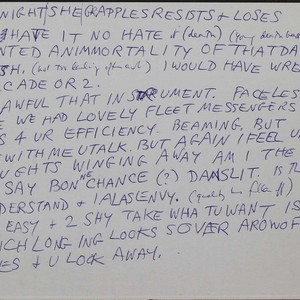 NIGHT SHE GRAPPLES RESISTS & LOSES
HATE IT NO HATE it (death)
NTED ANIMMORTALITY OF THATDA
SH. I WOULD HAVE WRE
CADE OR 2.
AWFUL THAT INSTRUMENT. FACELES
E WE HAD LOVELY FLEET MESSENGERS
S 4 UR EFFICIENCY. BEAMING, BUT
WITH ME U TALK. BUT AGAIN I FEEL U
UGHTS WINGING AWAY AM I THE
SAY BON NE CHANCE (?) DANSLIT. IS TH
DERSTAND & IALASENVY.
EASY & 2 SHY TAKE WHA TU WANT IS
ICH LONGING LOOKS SOVER AROWOF
ES & U LOOK AWAY.